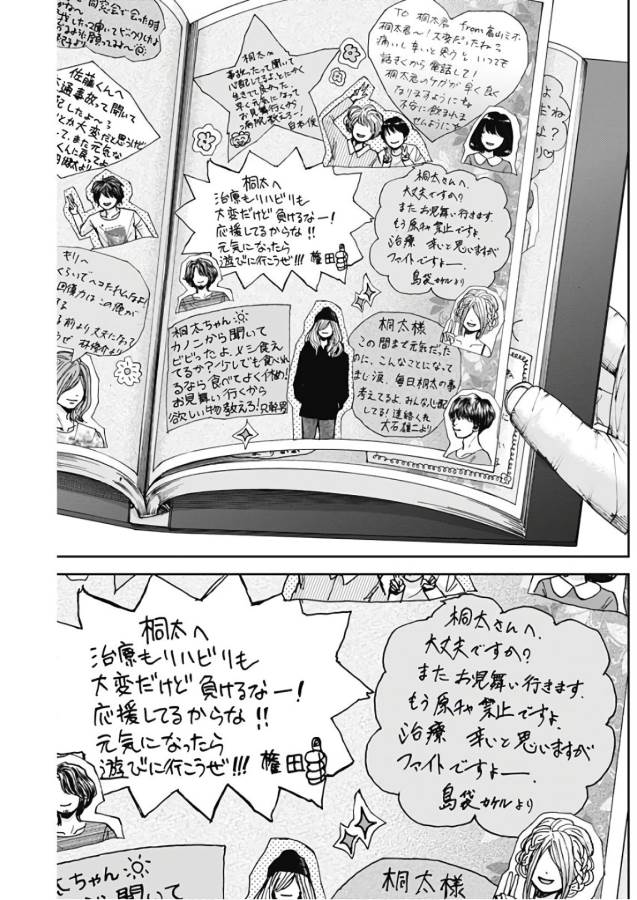 同窓会で会った時
佐藤くんへ
交通事故って聞いて
心配したよ～
桐太へ
事故ったって聞いて
心配してるよとにかく
生きてて良かった
早く元気になって
お見舞行くから
病院教えろー!
TO 桐太君 from 高山ミホ
桐太君～!大変だったね?
痛いし辛いと思う、いつでも
話きくから電話して!
桐太君のケガが早く良く
なりますようにね
不安に飲まれま
せんように
桐太へ
治療もリハビリも
大変だけど負けるなー!
応援してるからな!!
元気になったら
遊びに行こうぜ!!! 権田
桐太さんへ.
大丈夫ですか?
またお見舞い行きます.
もう原チャ禁止ですよ.
治療 辛いと思いますが
ファイトですよー.
島袋カケルより
桐太ちゃん
カノンから聞いて
ビビったよ.メシ食え
てるか?少しでも食べれ
るなら食べてよく休め!
お見舞い行くから
欲しい物教えろ!
桐太様
この間まで元気だった
のに、こんなことになって
まじ涙、毎日桐太の事
考えてるよ.みんな心配
してる!連絡くれ
大石雄二より
桐太へ
治療もリハビリも
大変だけど負けるなー!
応援してるからな!!
元気になったら
遊びに行こうぜ!!! 権田
桐太さんへ.
大丈夫ですか?
またお見舞い行きます.
もう原チャ禁止ですよ.
治療 辛いと思いますが
ファイトですよー.
島袋カケルより
太ちゃん
聞いて
桐太様